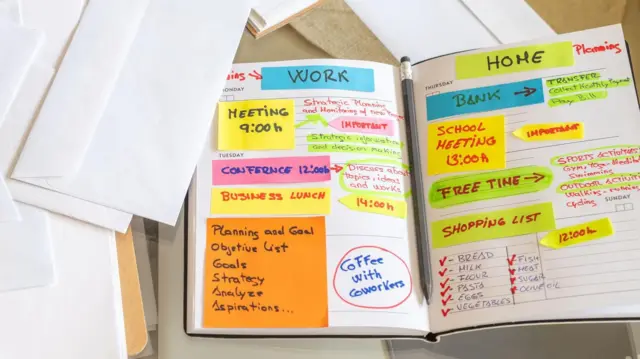 Planning
WORK
MONDAY
MEETING
9:00h
Strategic Planning
and Monitoring of
IMPORTANT
Strategic information
and decision making
TUESDAY
CONFERNCE 12:00h
Discuss about
topics, ideas
and works
BUSINESS LUNCH
14:00h
Planning and Goal
Objetive List
Goals
Strategy
Analyze
Aspirations...
COFFEE
WITH
COWORKERS
HOME
Planning
THURSDAY
BANK
TRANSFER
Collect Monthly Payment
Pay Bill
SCHOOL
MEETING
13:00h
IMPORTANT
FREE TIME
SPORTS ACTIVITIES
GYM, Yoga, Meditation
Swimming
OUTDOOR ACTIVITY
Walking,
Cycling
SUNDAY
SHOPPING LIST
12:00h
- BREAD
- MILK
- FLOUR
- PASTA
- EGGS
- VEGETABLES
- FISH
- MEAT
- SUGAR